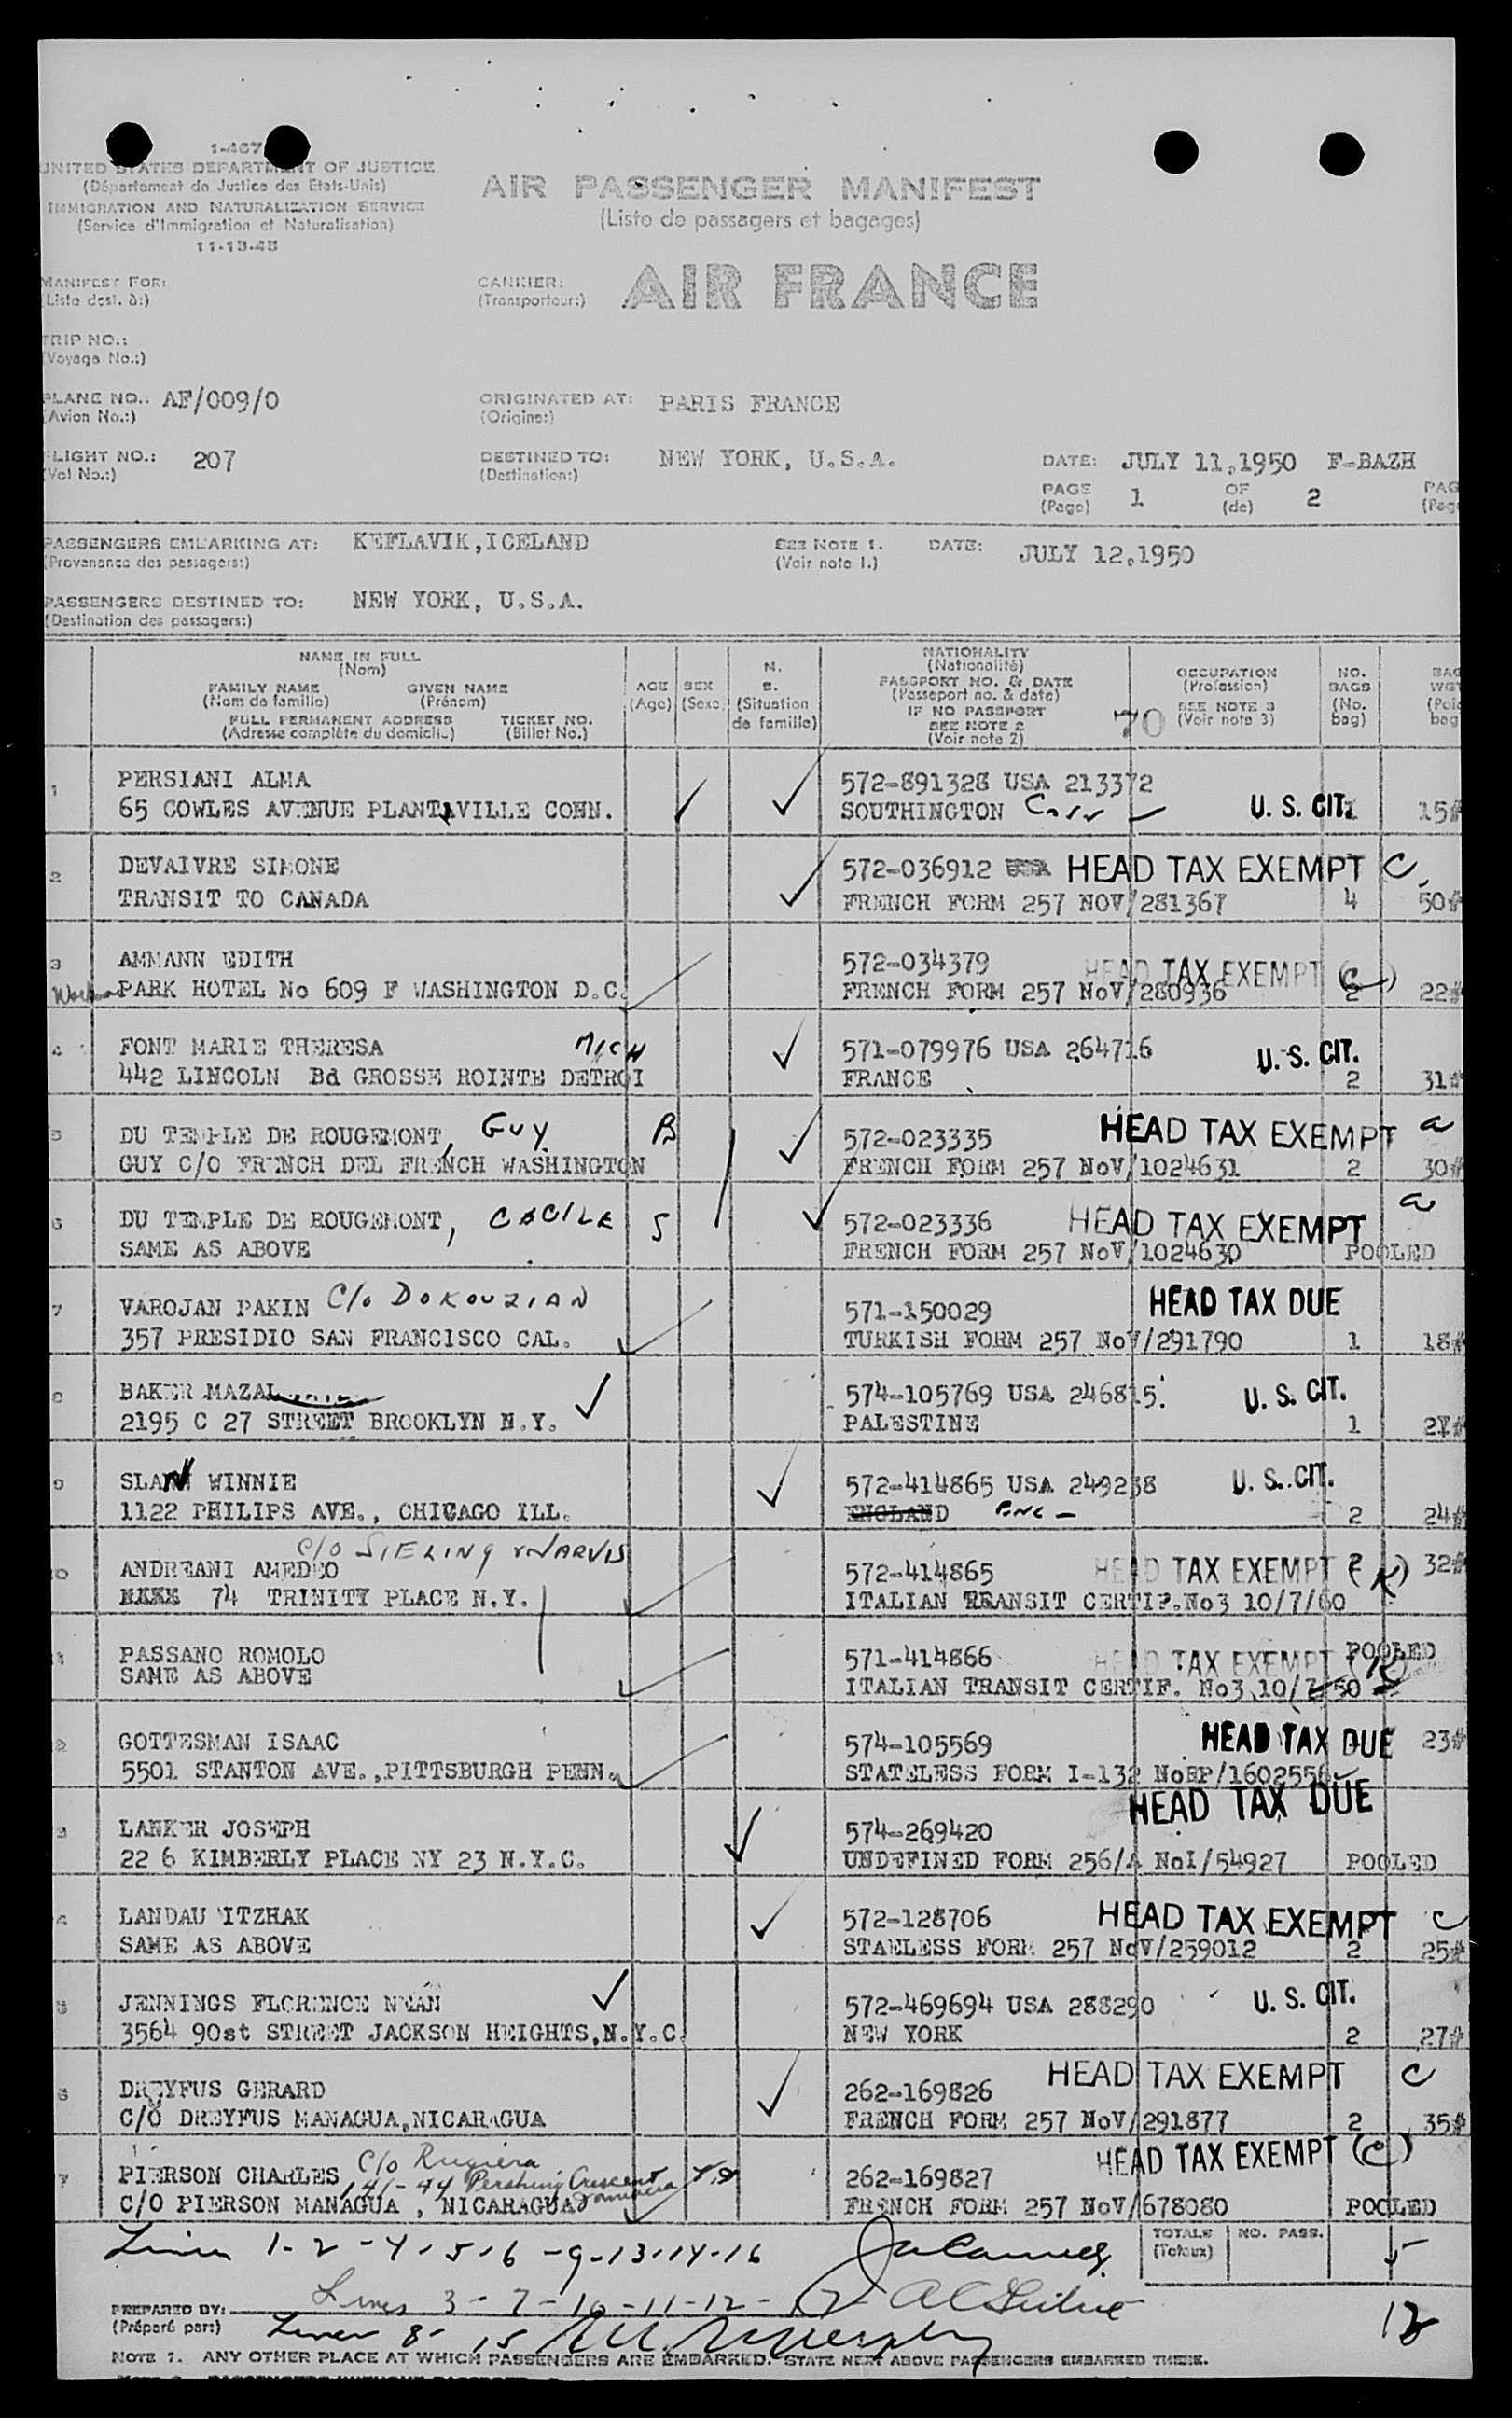 1-467
UNITED STATES DEPARTMENT OF JUSTICE
(Département de Justice des Etats-Unis)
IMMIGRATION AND NATURALIZATION SERVICE
(Service d'Immigration et Naturalisation)
11-13-48
AIR PASSENGER MANIFEST
(Liste de passagers et bagages)
MANIFEST FOR:
(Liste dest. à:)
CARRIER:
(Transporteur:)
AIR FRANCE
TRIP NO.:
(Voyage No.:)
PLANE NO.: AF/009/0
(Avion No.:)
ORIGINATED AT: PARIS FRANCE
(Origine:)
FLIGHT NO.: 207
(Vol No.:)
DESTINED TO: NEW YORK, U.S.A.
(Destination:)
DATE: JULY 11,1950 F-BAZH
PAGE 1 OF 2 PAG
(Page) (de) (Pag
PASSENGERS EMBARKING AT: KEFLAVIK,ICELAND SEE NOTE 1. DATE: JULY 12.1950
(Provenance des passagers:) (Voir note 1.)
PASSENGERS DESTINED TO: NEW YORK, U.S.A.
(Destination des passagers:)
NAME IN FULL
(Nom)
FAMILY NAME GIVEN NAME
(Nom de famille) (Prénom)
FULL PERMANENT ADDRESS TICKET NO.
(Adresse complète du domicile) (Billet No.)
AGE
(Age)
SEX
(Sexe)
M.
S.
(Situation
de famille)
NATIONALITY
(Nationalité)
PASSPORT NO. & DATE
(Passeport no. & date)
IF NO PASSPORT
SEE NOTE 2
(Voir note 2)
70
OCCUPATION
(Profession)
SEE NOTE 3
(Voir note 3)
NO.
BAGS
(No.
bag)
BAG
WGT
(Poid
bag
1 PERSIANI ALMA 572-891328 USA 213372
65 COWLES AVENUE PLANTSVILLE CONN. SOUTHINGTON Conn U. S. CIT. 15#
2 DEVAIVRE SIMONE 572-036912 HEAD TAX EXEMPT C
TRANSIT TO CANADA FRENCH FORM 257 NOV/281367 4 50#
3 AMMANN EDITH 572-034379 HEAD TAX EXEMPT (C)
PARK HOTEL No 609 F WASHINGTON D.C. FRENCH FORM 257 NoV/280936 2 22#
4 FONT MARIE THERESA MICH 571-079976 USA 264716 U. S. CIT.
442 LINCOLN Bd GROSSE ROINTE DETROI FRANCE 2 31#
5 DU TEMPLE DE ROUGEMONT, GUY B 572-023335 HEAD TAX EXEMPT a
GUY C/O FRENCH DEL FRENCH WASHINGTON FRENCH FORM 257 NoV/1024631 2 30#
6 DU TEMPLE DE ROUGEMONT, CECILE S 572-023336 HEAD TAX EXEMPT a
SAME AS ABOVE FRENCH FORM 257 NoV/1024630 POOLED
7 VAROJAN PAKIN C/o DOKOUZIAN 571-150029 HEAD TAX DUE
357 PRESIDIO SAN FRANCISCO CAL. TURKISH FORM 257 NoV/291790 1 18#
8 BAKER MAZAL 574-105769 USA 246815 U. S. CIT.
2195 C 27 STREET BROOKLYN N.Y. PALESTINE 1 21#
9 SLAN WINNIE 572-414865 USA 249238 U. S. CIT.
1122 PHILIPS AVE., CHICAGO ILL. ENGLAND 2 24#
C/O SIELING & JARVIS
10 ANDREANI AMEDEO 572-414865 HEAD TAX EXEMPT 2 (K) 32#
74 TRINITY PLACE N.Y. ITALIAN TRANSIT CERTIF.No3 10/7/60
11 PASSANO ROMOLO 571-414866 HEAD TAX EXEMPT (K) POOLED
SAME AS ABOVE ITALIAN TRANSIT CERTIF. No3 10/7/50
12 GOTTESMAN ISAAC 574-105569 HEAD TAX DUE 23#
5501 STANTON AVE.,PITTSBURGH PENN. STATELESS FORM I-132 NoEP/1602556
13 LANKER JOSEPH 574-269420 HEAD TAX DUE
22 6 KIMBERLY PLACE NY 23 N.Y.C. UNDEFINED FORM 256/A NoI/54927 POOLED
14 LANDAU ITZHAK 572-128706 HEAD TAX EXEMPT C
SAME AS ABOVE STAELESS FORM 257 NoV/259012 2 25#
15 JENNINGS FLORENCE NEAN 572-469694 USA 288290 U. S. CIT.
3564 90st STREET JACKSON HEIGHTS,N.Y.C. NEW YORK 2 27#
16 DREYFUS GERARD 262-169826 HEAD TAX EXEMPT C
C/O DREYFUS MANAGUA,NICARAGUA FRENCH FORM 257 NoV/291877 2 35#
C/o Rugiera
17 PIERSON CHARLES, 41-44 Pershing Crescent Jamaica 262-169827 HEAD TAX EXEMPT (C)
C/O PIERSON MANAGUA , NICARAGUA FRENCH FORM 257 NoV/678080 POOLED
Lines 1-2-4-5-6-9-13-14-16
TOTALS NO. PASS.
(Totaux)
Lines 3-7-10-11-12-17
PREPARED BY:
(Préparé par:)
Lines 8-15
12
NOTE 1. ANY OTHER PLACE AT WHICH PASSENGERS ARE EMBARKED. STATE NEXT ABOVE PASSENGERS EMBARKED THERE.